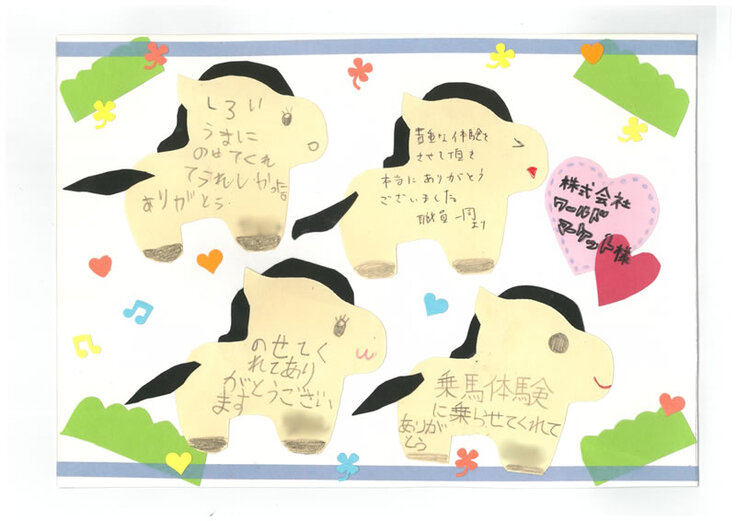 しろい
うまに
のせてくれ
てうれしかったよ
ありがとう。
貴重な体験を
させて頂き
本当にありがとう
ございました。
職員一同より
株式会社
ワールド
マーケット様
のせてく
れてあり
がとうござい
ます
乗馬体験
に乗らせてくれて
ありが
とう